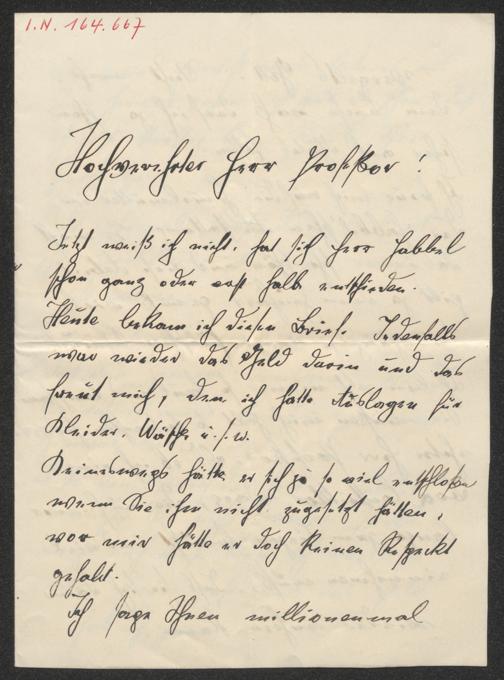 I.N. 164.667
Hochverehrter Herr Profeßor!
Jetzt weiß ich nicht, hat sich Herr Habbel
schon ganz oder erst halb entschieden.
Heute bekam ich diesen Brief. Jedenfalls
war wieder das Geld darin und das
freut mich, den ich hatte Auslagen für
Kleider, Wäsche u.s.w.
Keineswegs hätte er sich je so viel entschloßen
wenn Sie ihm nicht zugesetzt hätten,
vor mir hätte er doch keinen Respeckt
gehabt.
Ich sage Ihnen millionenmal